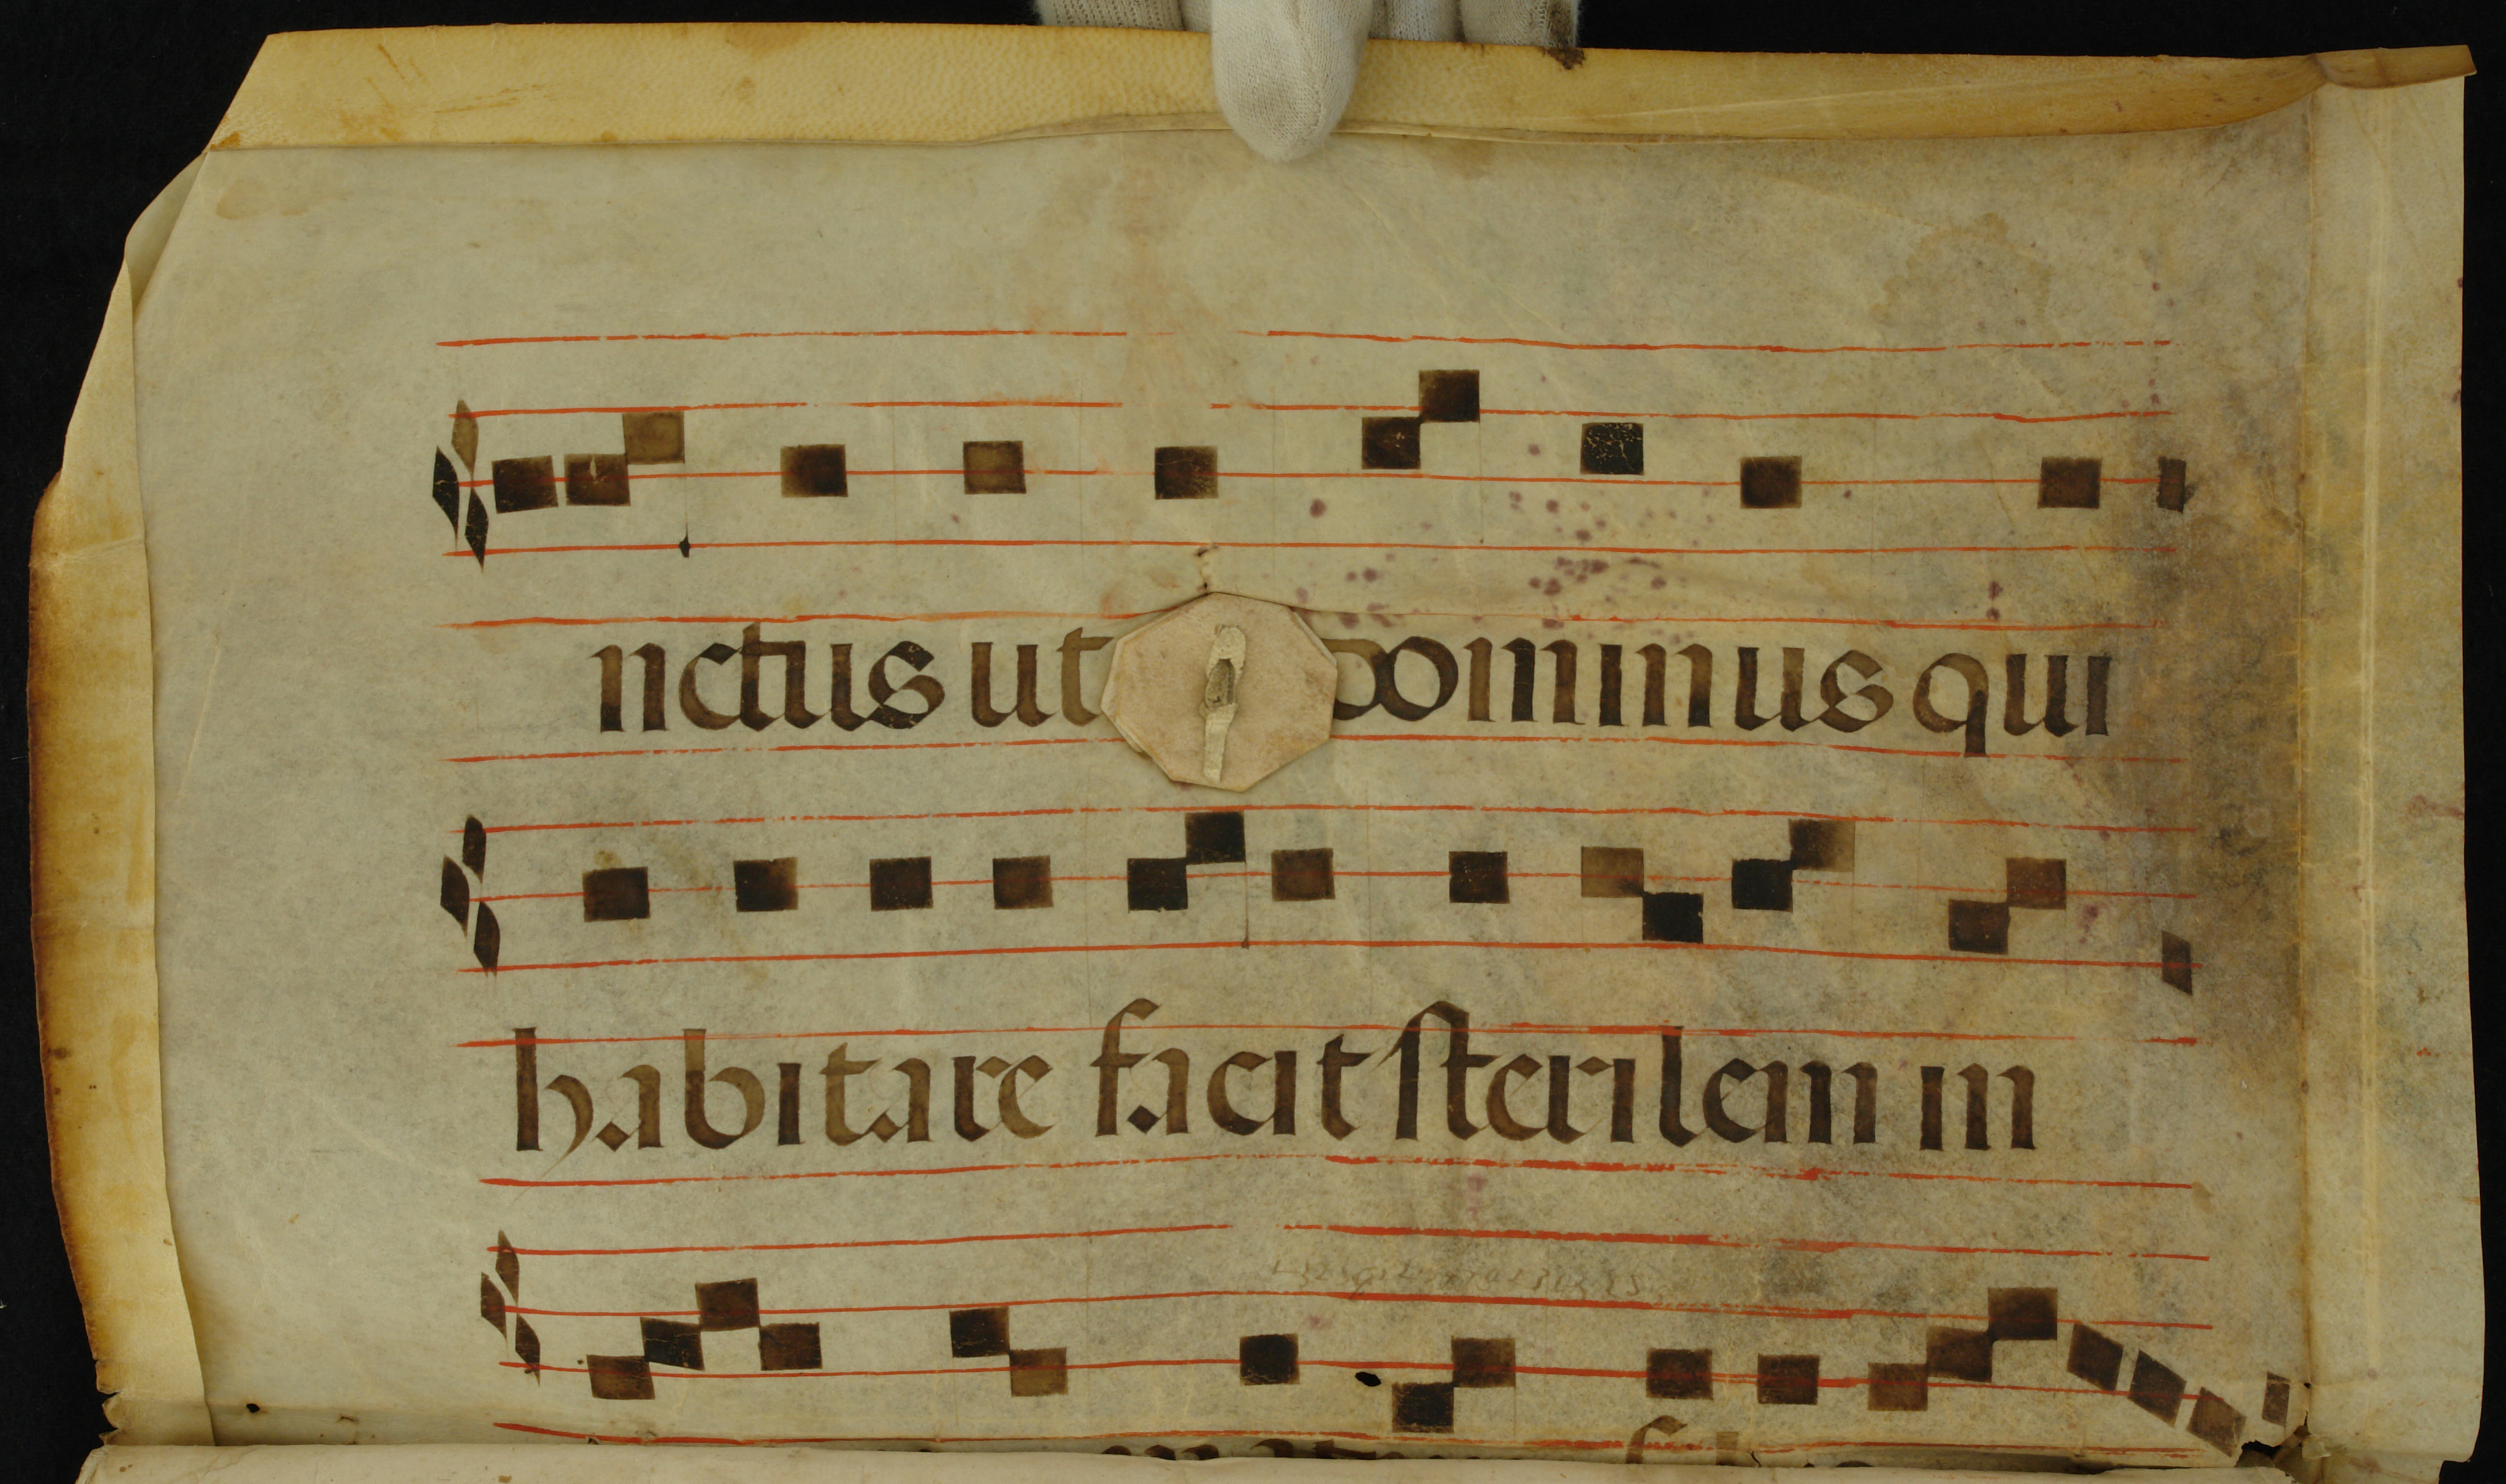 nctus ut dominus qui
habitare facit sterilem in